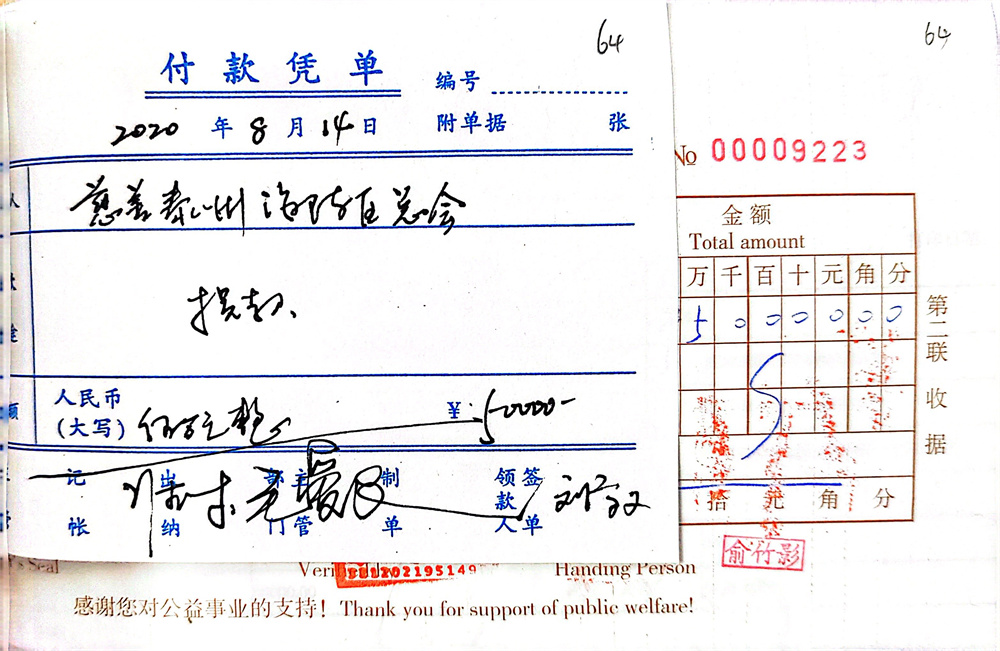 64
64
付款凭单
编号
2020年8月14日
附单据 张
No 00009223
慈善泰州海陵区总会
捐款
人民币
(大写)伍万元整
¥50000-
记 出 部 主 制 领 签
款
帐 纳 门 管 单 人 单
金额
Total amount
万 千 百 十 元 角 分
5 0 0 0 0 0 0
拾 元 角 分
第二联 收据
俞竹影
Handing Person
感谢您对公益事业的支持! Thank you for support of public welfare!